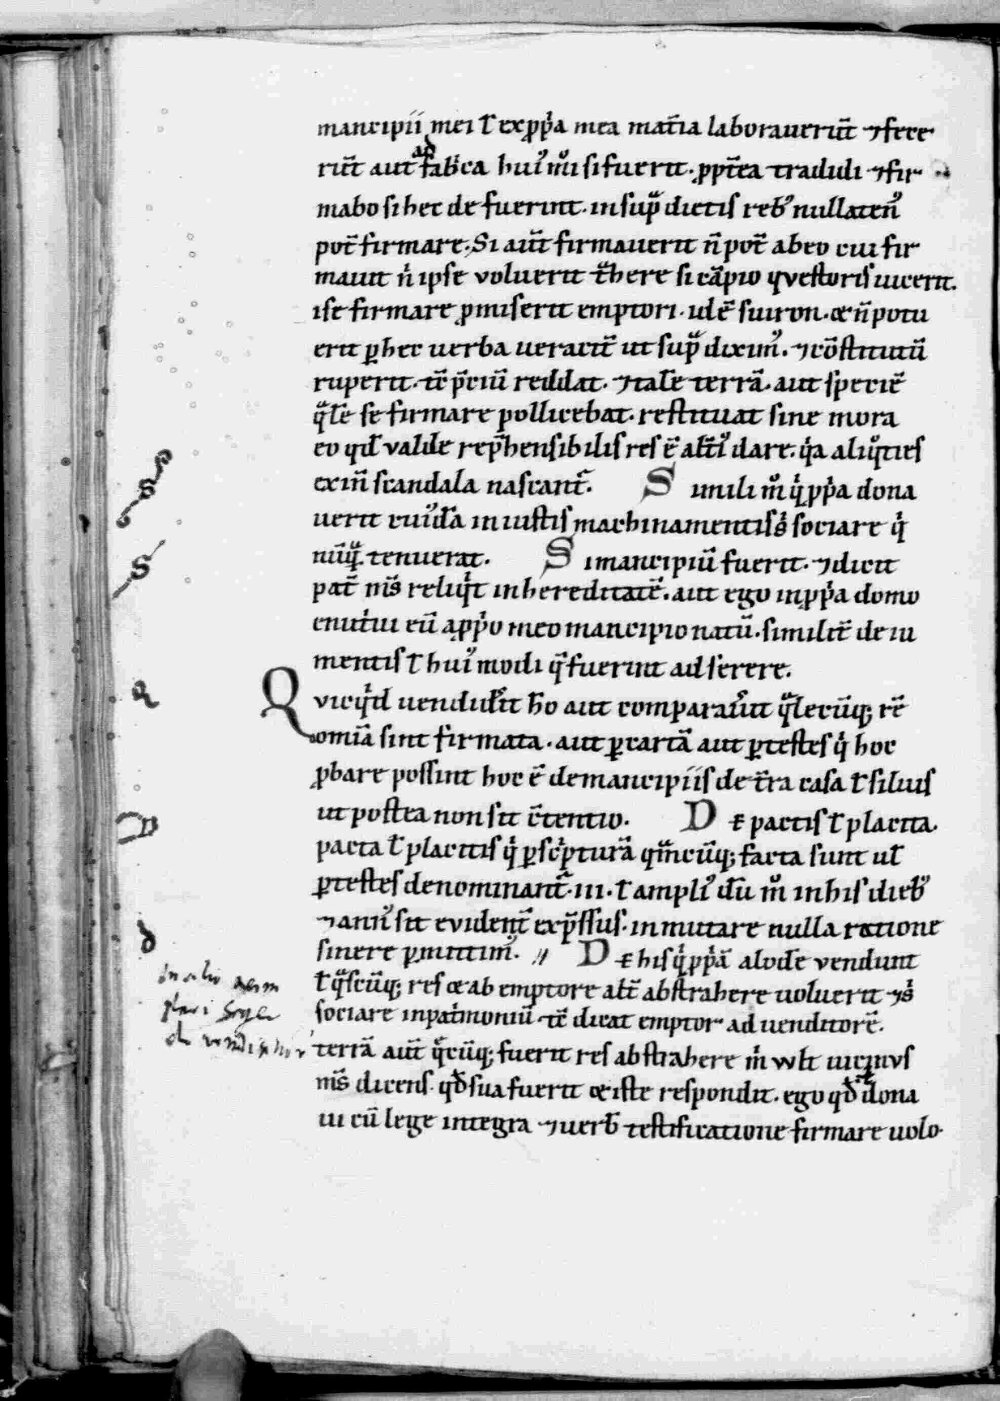 mancipii mei ł exp̱pͥa mea mat̄ia laborauerūt ⁊fece
rūt aut ad fabͥca huiꝰ mͦi si fuerit. ꝓpt̄ea tradidi ⁊fir
mabo si hec de fuerint. insupᷓ dictis rebꝰ nullatenꝰ
pot̄ firmare. Si aut̄ firmauerit n̄ pot̄ abeo cui fir
mauit nͥ ipse voluerit
ise firmare ꝓmiserit emptori. idē suiron. & n̄ potu
erit ꝑhec uerba ueracit̄ ut supᷓ diximꝰ. ⁊cōstitutū
ruperit. tē p̄ciū reddat. ⁊talē terrā. aut speciē
qᷓlē se firmare pollicebat. restituat sine mora
eo qd̄ valde rep̄hensibilis res ē alt̄iꝰ dare. qͥa aliqͦties
exin̄ scandala nascant᷑. S imili mͦ qͥ ꝓpͥa dona
uerit cuid̄a iniustis machinamentis sociare qͥ
nūqᷓ tenuerat. S i mancipiū fuerit. ⁊dicit
pat̄ nr̄s reliqͥt in hereditatē. aut ego inꝓpͥa domo
enutͥui eū aꝓpͥo meo mancipio natū. similit̄ de iu
mentis ł huiꝰmodi q̄ fuerint adserere.
Quicqͥd uendidēit hō aut comparauͥit qᷓlēcūq; rē
omīa sint firmata. aut ꝑcartā aut ꝑtestes qͥ hoc
ꝓbare possint hoc ē de mancipiis de t̄ra casa ł siluis
ut postea non sit c̄tentio. D E pactis ł placita.
pacta ł placitis qͥ ꝑscͥpturā qm̄cūq; facta sunt ul̄
ꝑtestes denominant᷑. iii. ł ampliꝰ dū mͦ in his diebꝰ
⁊annꝰ sit evident᷑ exp̄ssus. inmutare nulla ratione
sinere ꝑmittimꝰ. // D E his qͥ ꝓpͥā alodē vendunt
ł qᷓscūq; res & ab emptore alt̄ abstrahere uoluerit ⁊sͥ
sociare inpat̄moniū. tē dicat emptor ad uenditorē.
terrā aut̄ qͥcūq; fuerit res abstrahere mͥ vult uicinus
m̄s dicens. qd̄ sua fuerit & iste respondit. ego qd̄ tͥ dona
ui cū lege integra ⁊uerb̄ testificatione firmare uolo.
S
S
Q
D
d